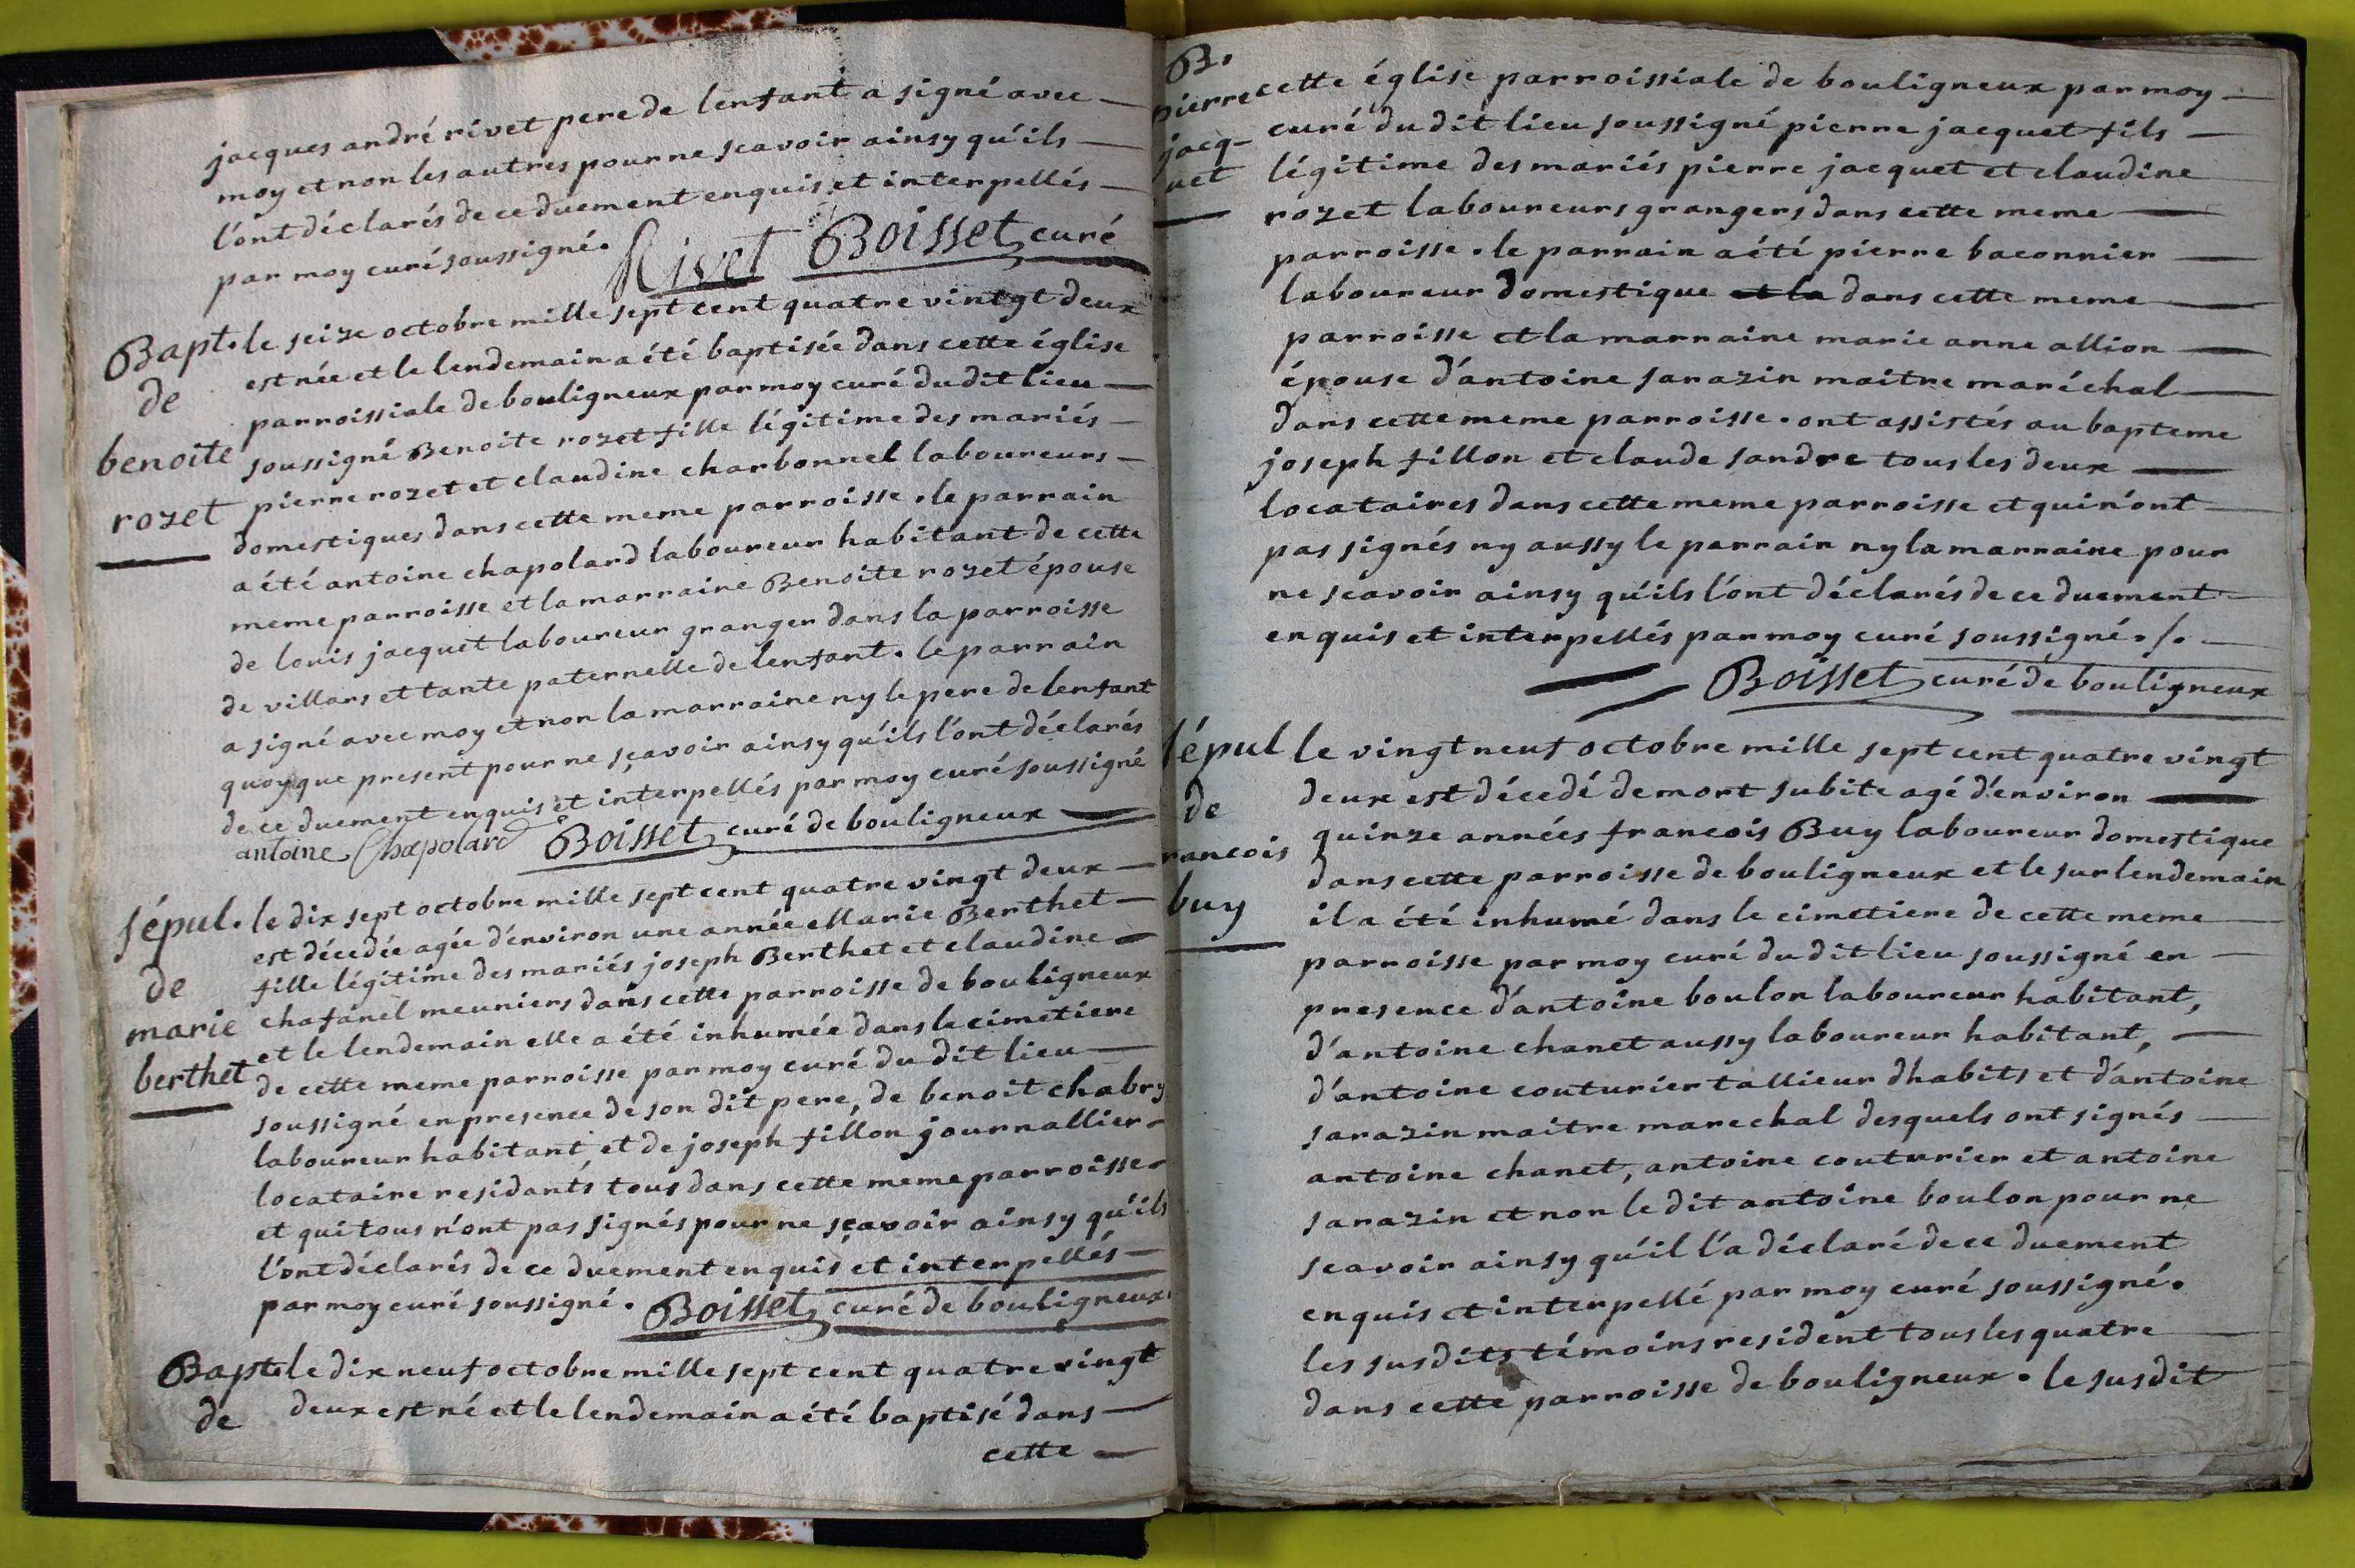 jacques andré rivet pere de lenfant a signé avec
moy et non les autres pour ne scavoir ainsy qu'ils
l'ont déclarés de ce duement enquis et interpellés
par moy curé soussigné. Rivet Boisset curé
Bapt. le seize octobre mille sept cent quatre vintgt deux
est née et le lendemain a été baptisée dans cette église
de parroissiale de bouligneux par moy curé du dit lieu
benoite soussigné Benoite rozet fille légitime des mariés
rozet pierre rozet et claudine charbonnel laboureurs
domestiques dans cette meme parroisse. le parrain
a été antoine chapolard laboureur habitant de cette
meme parroisse et la marraine Benoite rozet épouse
de louis jacquet laboureur granger dans la parroisse
de villars et tante paternelle de lenfant. le parrain
a signé avec moy et non la marraine ny le pere de lenfant
quoyque present pour ne sçavoir ainsy qu'ils l'ont déclarés
de ce duement enquis et interpellés par moy curé soussigné
antoine Chapolard Boisset curé de bouligneux
sépul. le dix sept octobre mille sept cent quatre vingt deux
est décedée agée d'environ une année Marie Berthet
de fille légitime des mariés joseph Berthet et claudine
marie chafanel meuniers dans cette parroisse de bouligneux
et le lendemain elle a été inhumée dans le cimetiere
berthet de cette meme parroisse par moy curé du dit lieu
soussigné en presence de son dit pere, de benoit chabry
laboureur habitant, et de joseph fillon journallier
locataire residants tous dans cette meme parroisse
et qui tous n'ont pas signés pour ne sçavoir ainsy qu'ils
l'ont déclarés de ce duement enquis et interpellés
par moy curé soussigné. Boisset curé de bouligneux.
Bapt. le dix neuf octobre mille sept cent quatre vingt
de deux est né et le lendemain a été baptisé dans
cette
B.
pierre cette église parroissiale de bouligneux par moy
jacq- curé du dit lieu soussigné pierre jacquet fils
uet légitime des mariés pierre jacquet et claudine
rozet laboureurs grangers dans cette meme
parroisse. le parrain a été pierre baconnier
laboureur domestique et la dans cette meme
parroisse et la marraine marie anne allion
épouse d'antoine sarazin maitre maréchal
dans cette meme parroisse. ont assistés au bapteme
joseph fillon et claude sandre tous les deux
locataires dans cette meme parroisse et qui n'ont
pas signés ny aussy le parrain ny la marraine pour
ne scavoir ainsy qu'ils l'ont déclarés de ce duement
enquis et interpellés par moy curé soussigné. /.
Boisset curé de bouligneux
sépul le vingt neuf octobre mille sept cent quatre vingt
de deux est décedé de mort subite agé d'environ
quinze années francois Buy laboureur domestique
rancois dans cette parroisse de bouligneux et le surlendemain
buy il a été inhumé dans le cimetiere de cette meme
parroisse par moy curé du dit lieu soussigné en
presence d'antoine boulon laboureur habitant,
d'antoine chanet aussy laboureur habitant,
d'antoine couturier tallieur dhabits et d'antoine
sarazin maitre marechal desquels ont signés
antoine chanet, antoine couturier et antoine
sarazin et non le dit antoine boulon pour ne
scavoir ainsy qu'il l'a déclaré de ce duement
enquis et interpellé par moy curé soussigné.
les susdits témoins resident tous les quatre
dans cette parroisse de bouligneux. le susdit